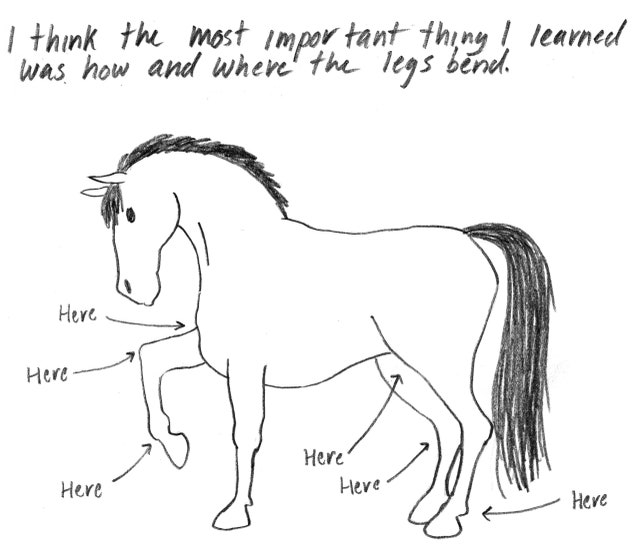 I think the most important thing I learned
was how and where the legs bend.
Here
Here
Here
Here
Here
Here